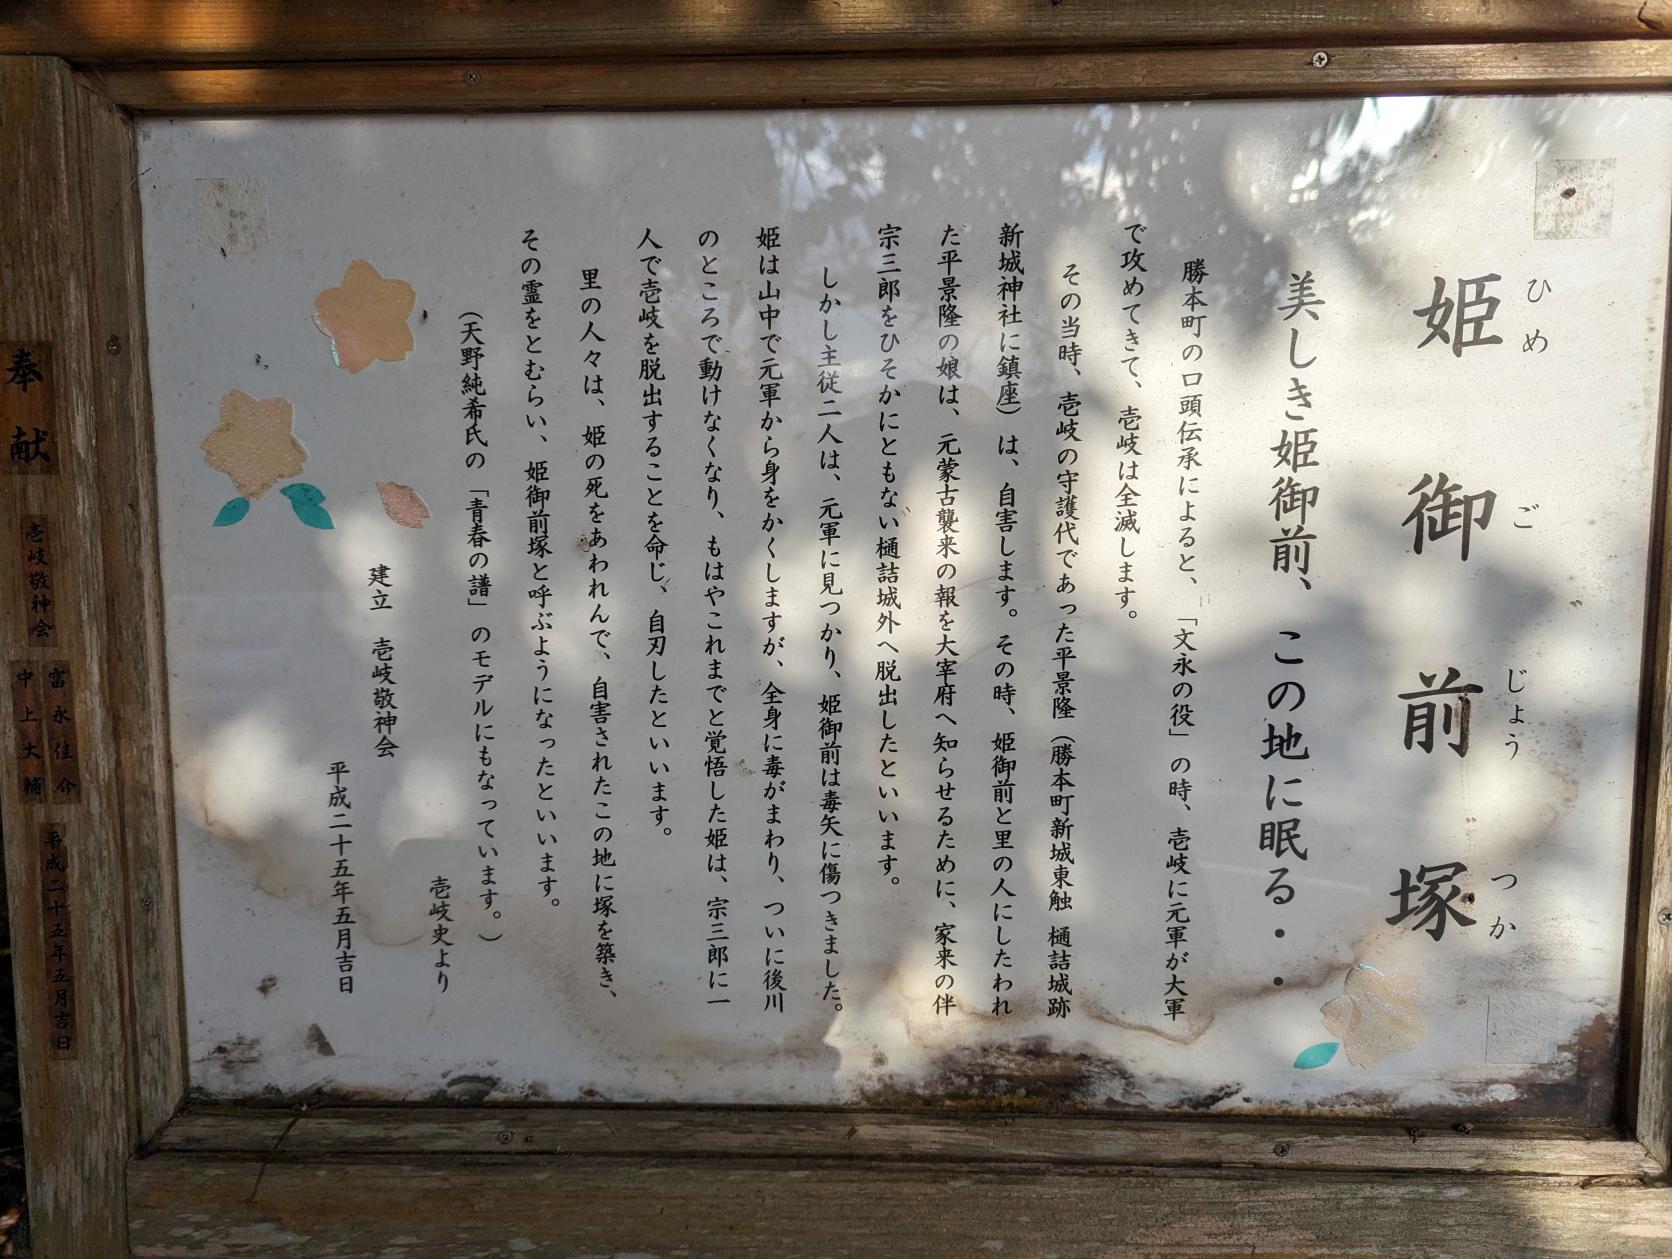 姫御前塚
ひめ ご じょう つか
美しき姫御前、この地に眠る・・
勝本町の口頭伝承によると、「文永の役」の時、壱岐に元軍が大軍
で攻めてきて、壱岐は全滅します。
その当時、壱岐の守護代であった平景隆（勝本町新城東触　樋詰城跡
新城神社に鎮座）は、自害します。その時、姫御前と里の人にしたわれ
た平景隆の娘は、元蒙古襲来の報を大宰府へ知らせるために、家来の伴
宗三郎をひそかにともない樋詰城外へ脱出したといいます。
しかし主従二人は、元軍に見つかり、姫御前は毒矢に傷つきました。
姫は山中で元軍から身をかくしますが、全身に毒がまわり、ついに後川
のところで動けなくなり、もはやこれまでと覚悟した姫は、宗三郎に一
人で壱岐を脱出することを命じ、自刃したといいます。
里の人々は、姫の死をあわれんで、自害されたこの地に塚を築き、
その霊をとむらい、姫御前塚と呼ぶようになったといいます。
（天野純希氏の「青春の譜」のモデルにもなっています。）
壱岐史より
建立　壱岐敬神会
平成二十五年五月吉日
奉献　壱岐敬神会
富永佳介
中上大輔
平成二十五年五月吉日